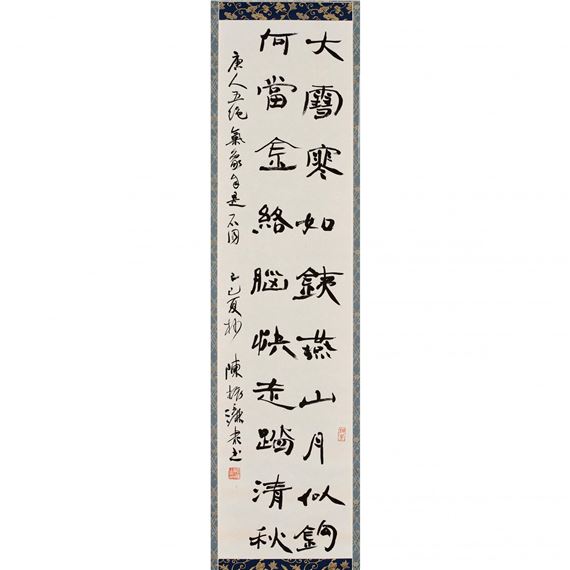 大雪寒如銕燕山月似鉤
何當金絡腦快走踏清秋
唐人五绝氣象自是不同 乙巳夏杪 陳振濂